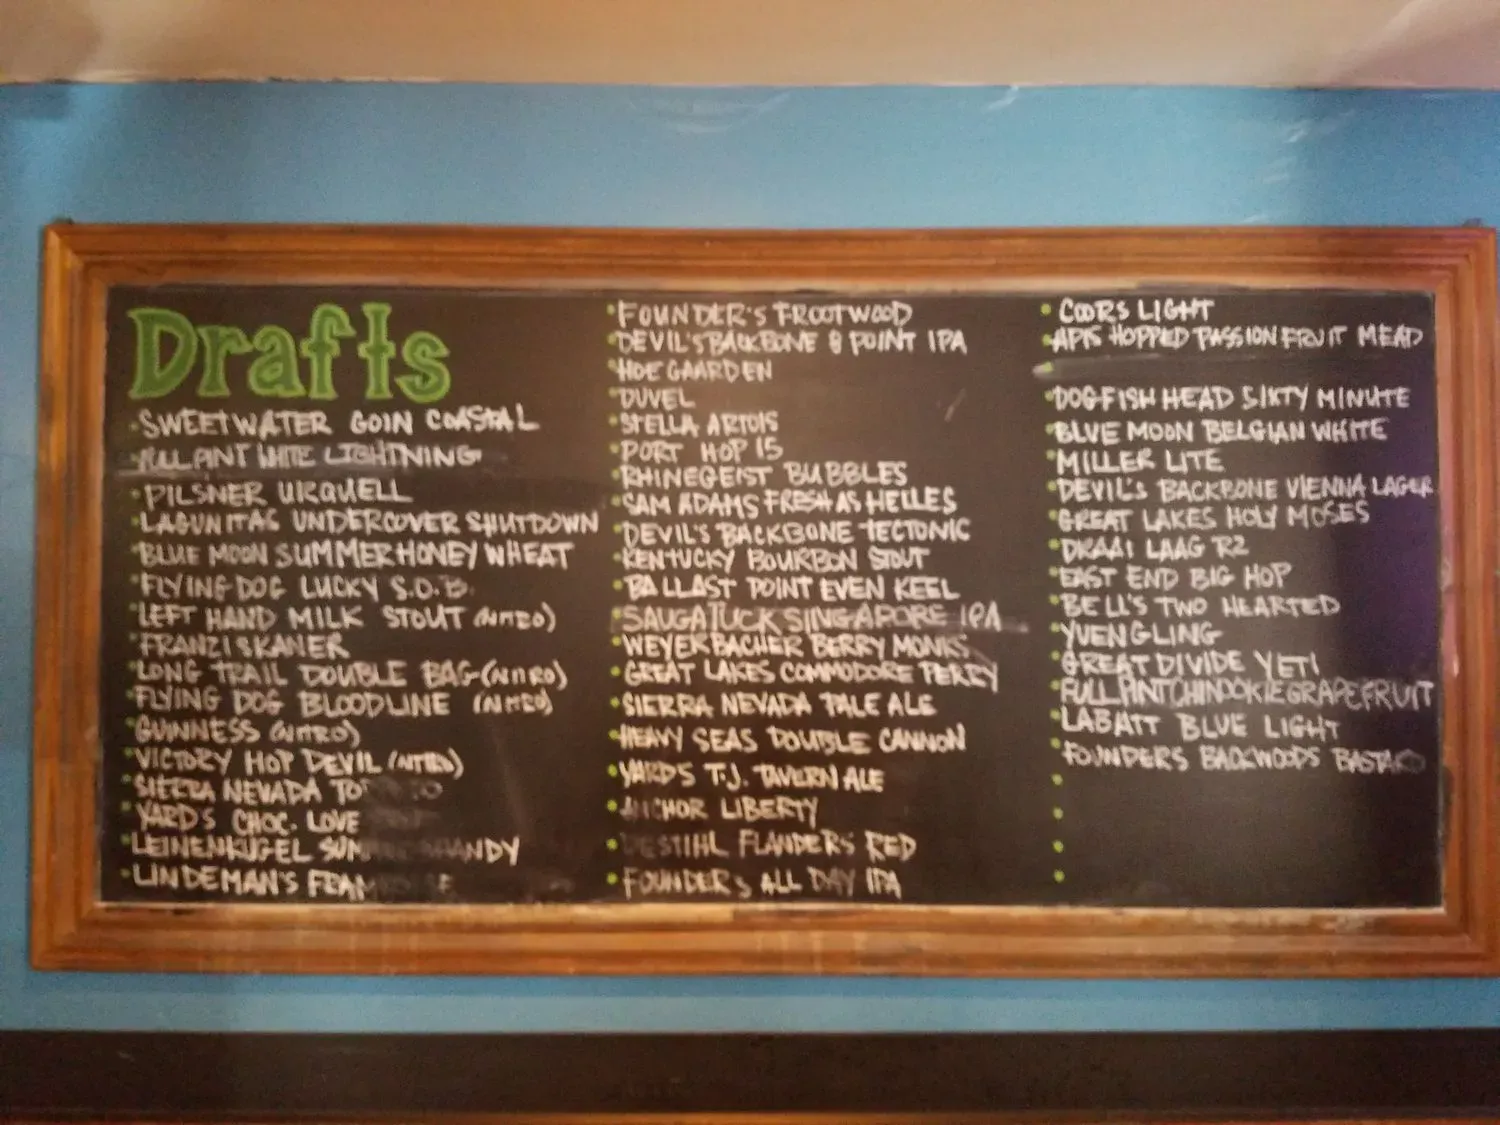 Drafts
SWEETWATER GOIN COASTAL
FULL PINT WHITE LIGHTNING
PILSNER URQUELL
LAGUNITAS UNDERCOVER SHUTDOWN
BLUE MOON SUMMER HONEY WHEAT
FLYING DOG LUCKY S.O.B.
LEFT HAND MILK STOUT (NITRO)
FRANZISKANER
LONG TRAIL DOUBLE BAG (NITRO)
FLYING DOG BLOODLINE (NITRO)
GUINNESS (NITRO)
VICTORY HOP DEVIL (NITRO)
SIERRA NEVADA
YARD'S CHOC. LOVE
LEINENKUGEL
LINDEMAN'S
FOUNDER'S FROOTWOOD
DEVIL'S BACKBONE 8 POINT IPA
HOEGAARDEN
DUVEL
STELLA ARTOIS
PORT HOP 15
RHINEGEIST BUBBLES
SAM ADAMS FRESH AS HELLES
DEVIL'S BACKBONE TECTONIC
KENTUCKY BOURBON STOUT
BALLAST POINT EVEN KEEL
SAUGATUCK SINGAPORE IPA
WEYERBACHER BERRY MONKS
GREAT LAKES COMMODORE PERRY
SIERRA NEVADA PALE ALE
HEAVY SEAS DOUBLE CANNON
YARDS T.J. TAVERN ALE
ANCHOR LIBERTY
DESTIHL FLANDERS RED
FOUNDER'S ALL DAY IPA
COORS LIGHT
APIS HOPPED PASSION FRUIT MEAD
DOGFISH HEAD SIXTY MINUTE
BLUE MOON BELGIAN WHITE
MILLER LITE
DEVIL'S BACKBONE VIENNA LAGER
GREAT LAKES HOLY MOSES
DRAAI LAAG R2
EAST END BIG HOP
BELL'S TWO HEARTED
YUENGLING
GREAT DIVIDE YETI
FULL PINT CHINOOKIE GRAPEFRUIT
LABATT BLUE LIGHT
FOUNDERS BACKWOODS BASTARD